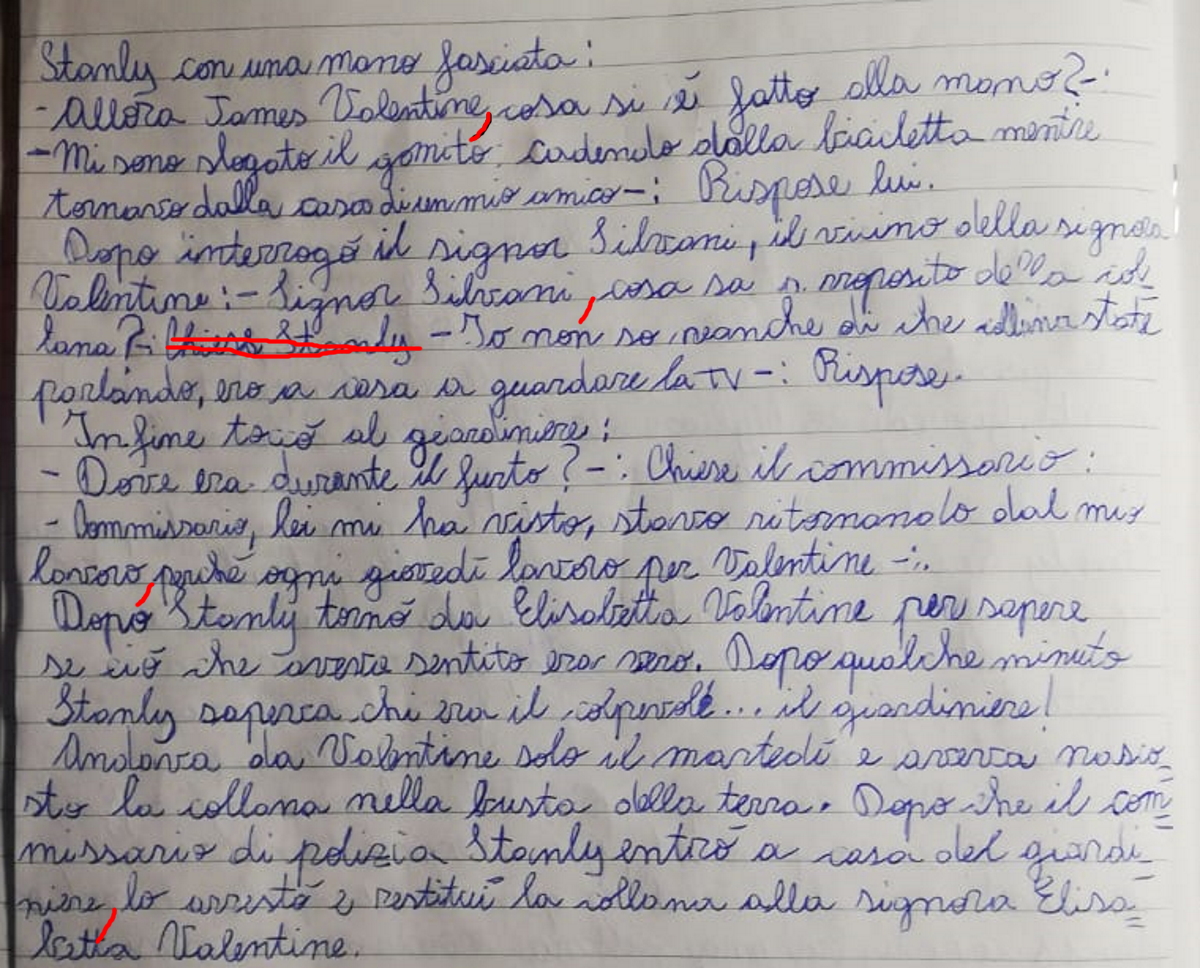 Stanly con una mano fasciata:
- Allora James Valentine, cosa si è fatto alla mano?-:
- Mi sono slogato il gomito cadendo dalla bicicletta mentre
tornavo dalla casa di un mio amico -: Rispose lui.
Dopo interrogò il signor Silvani, il vicino della signora
Valentine: - Signor Silvani, cosa sa a proposito della col
lana?-: Chiese Stanly - Io non so neanche di che collana state
parlando, ero a casa a guardare la TV -: Rispose.
Infine toccò al giardiniere:
- Dove era durante il furto? -: Chiese il commissario:
- Commissario, lei mi ha visto, stavo ritornando dal mio
lavoro, perché ogni giovedì lavoro per Valentine -:.
Dopo Stanly tornò da Elisabetta Valentine per sapere
se ciò che aveva sentito era vero. Dopo qualche minuto
Stanly sapeva chi era il colpevole... il giardiniere!
Andava da Valentine solo il martedì e aveva nasco_
sto la collana nella busta della terra. Dopo che il com=
missario di polizia Stanly entrò a casa del giardi_
niere, lo arrestò e restituì la collana alla signora Elisa=
betta Valentine.